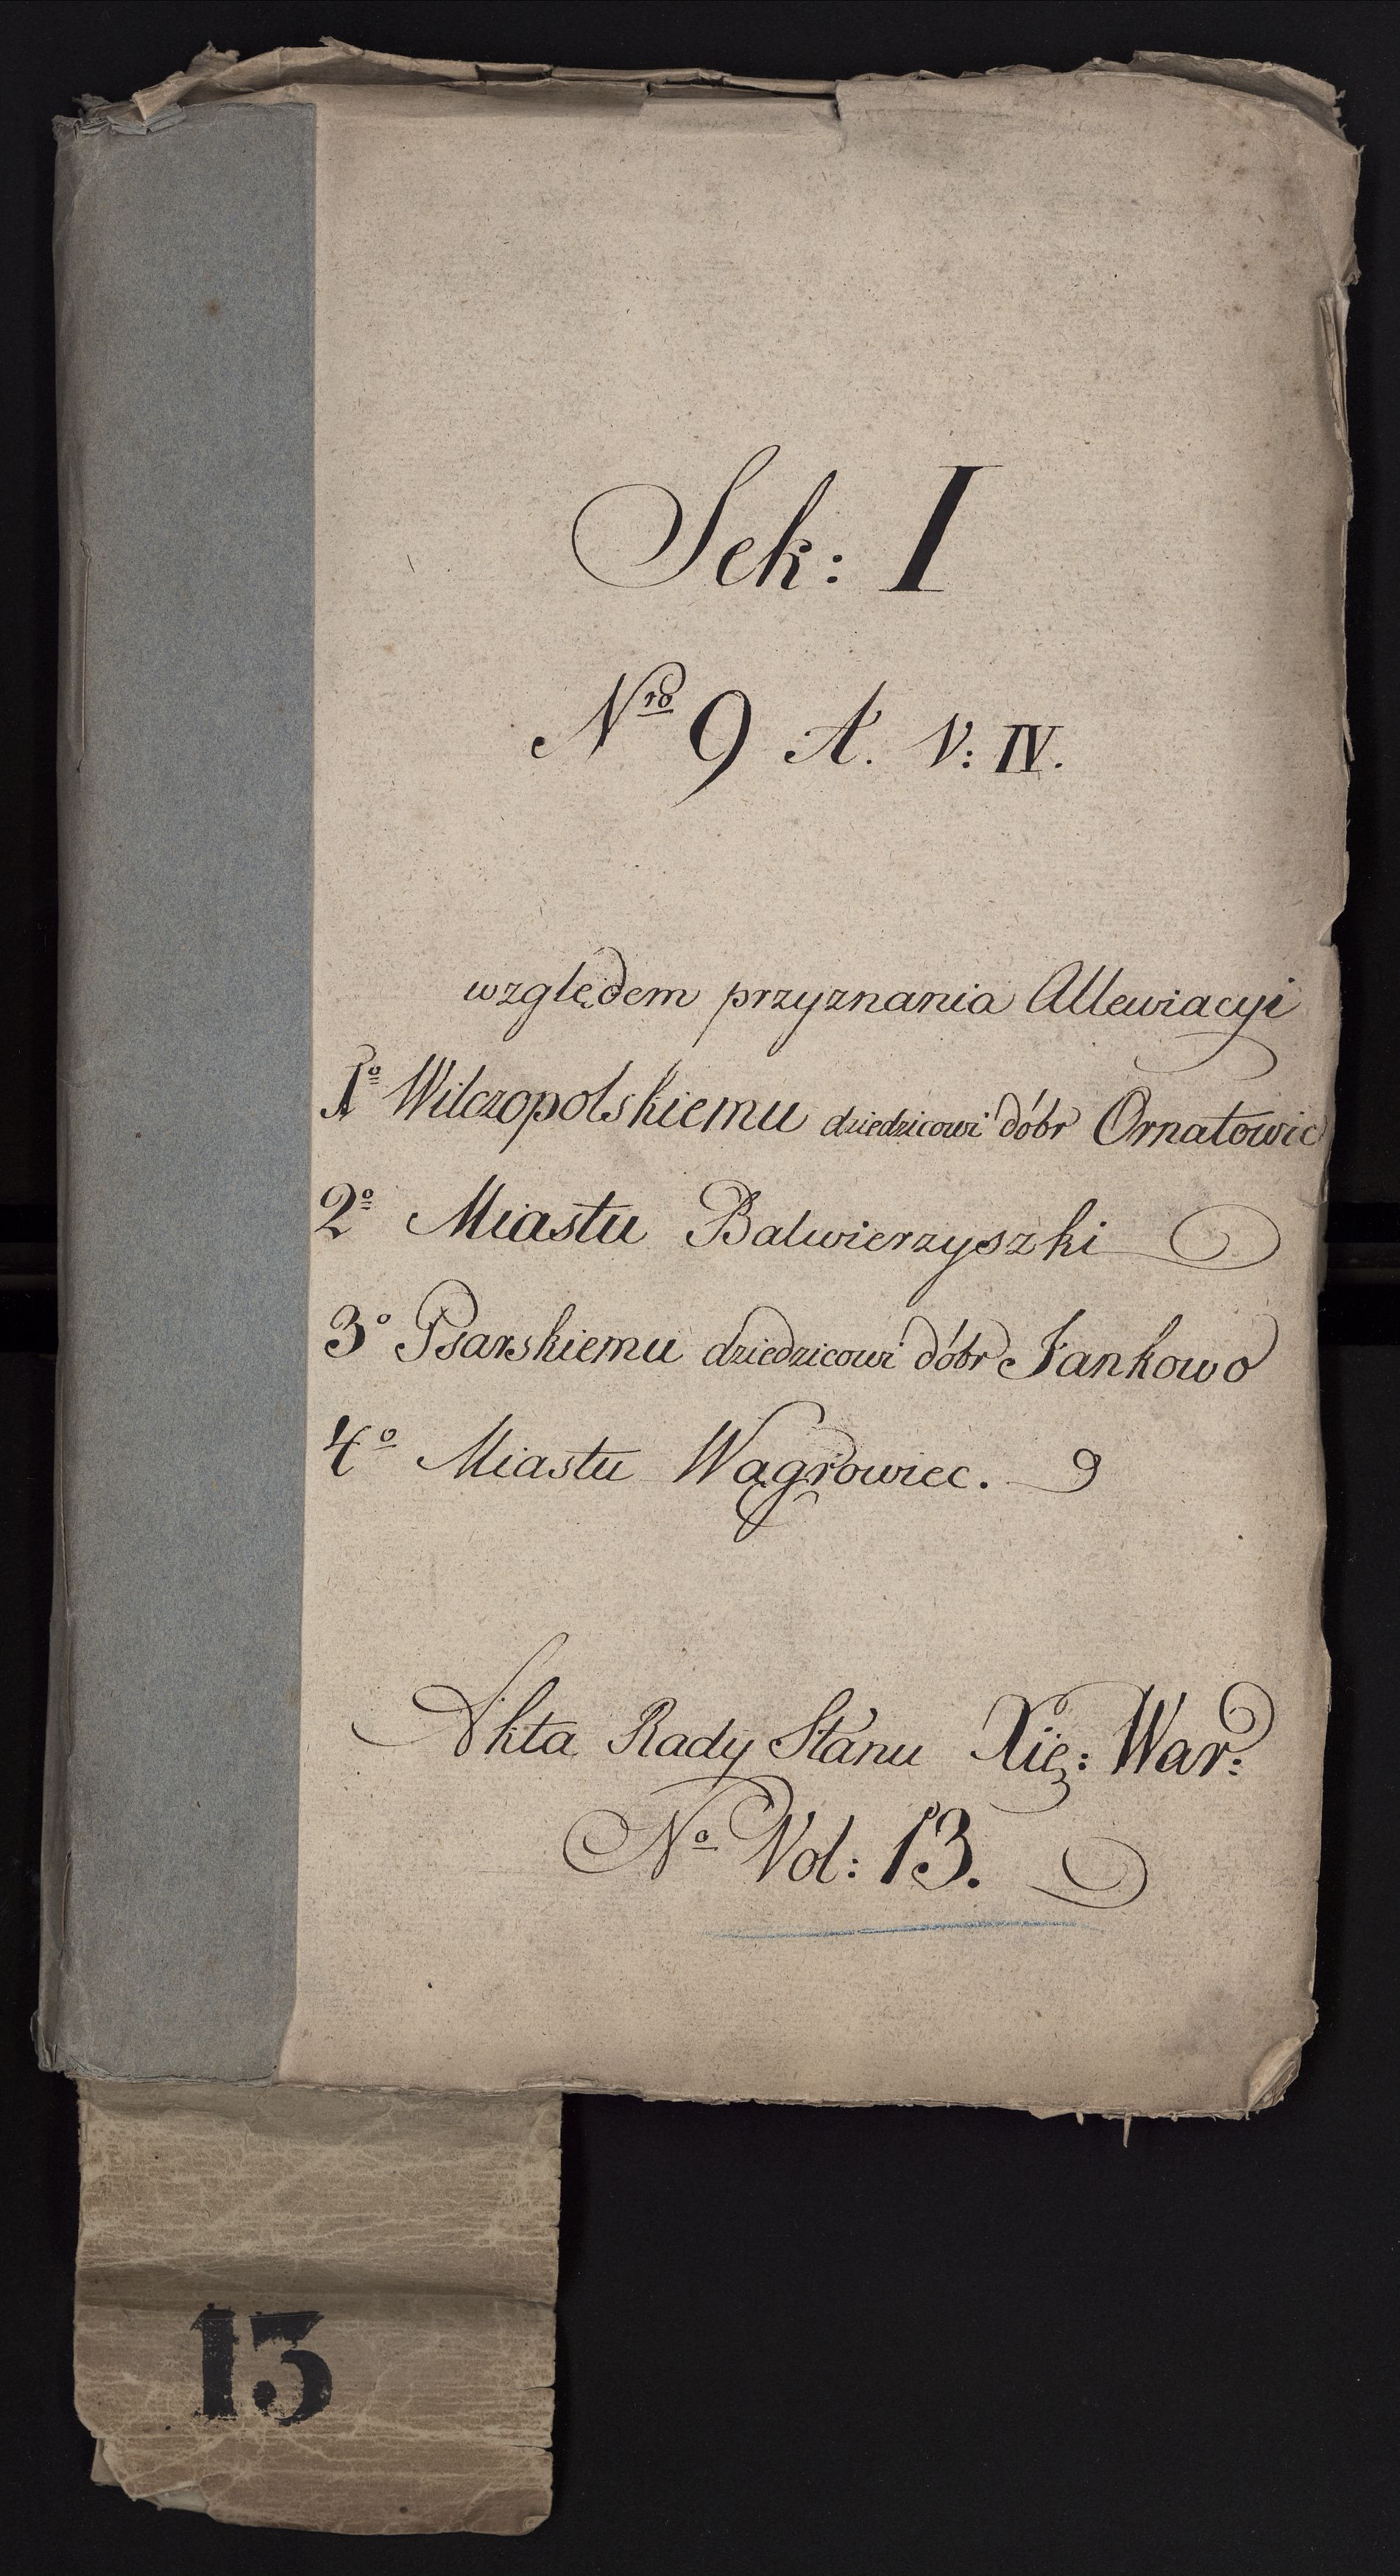 Sek: I
Nro 9 A. V: IV.
względem przyznania Allewiacyi
1o Wilczopolskiemu dziedzicowi dóbr Ornatowic
2o Miastu Balwierzyszki
3o Psarskiemu dziedzicowi dóbr Jankowo
4o Miastu Wągrowiec.
Akta Rady Stanu Xię: War:
No Vol: 13.
13